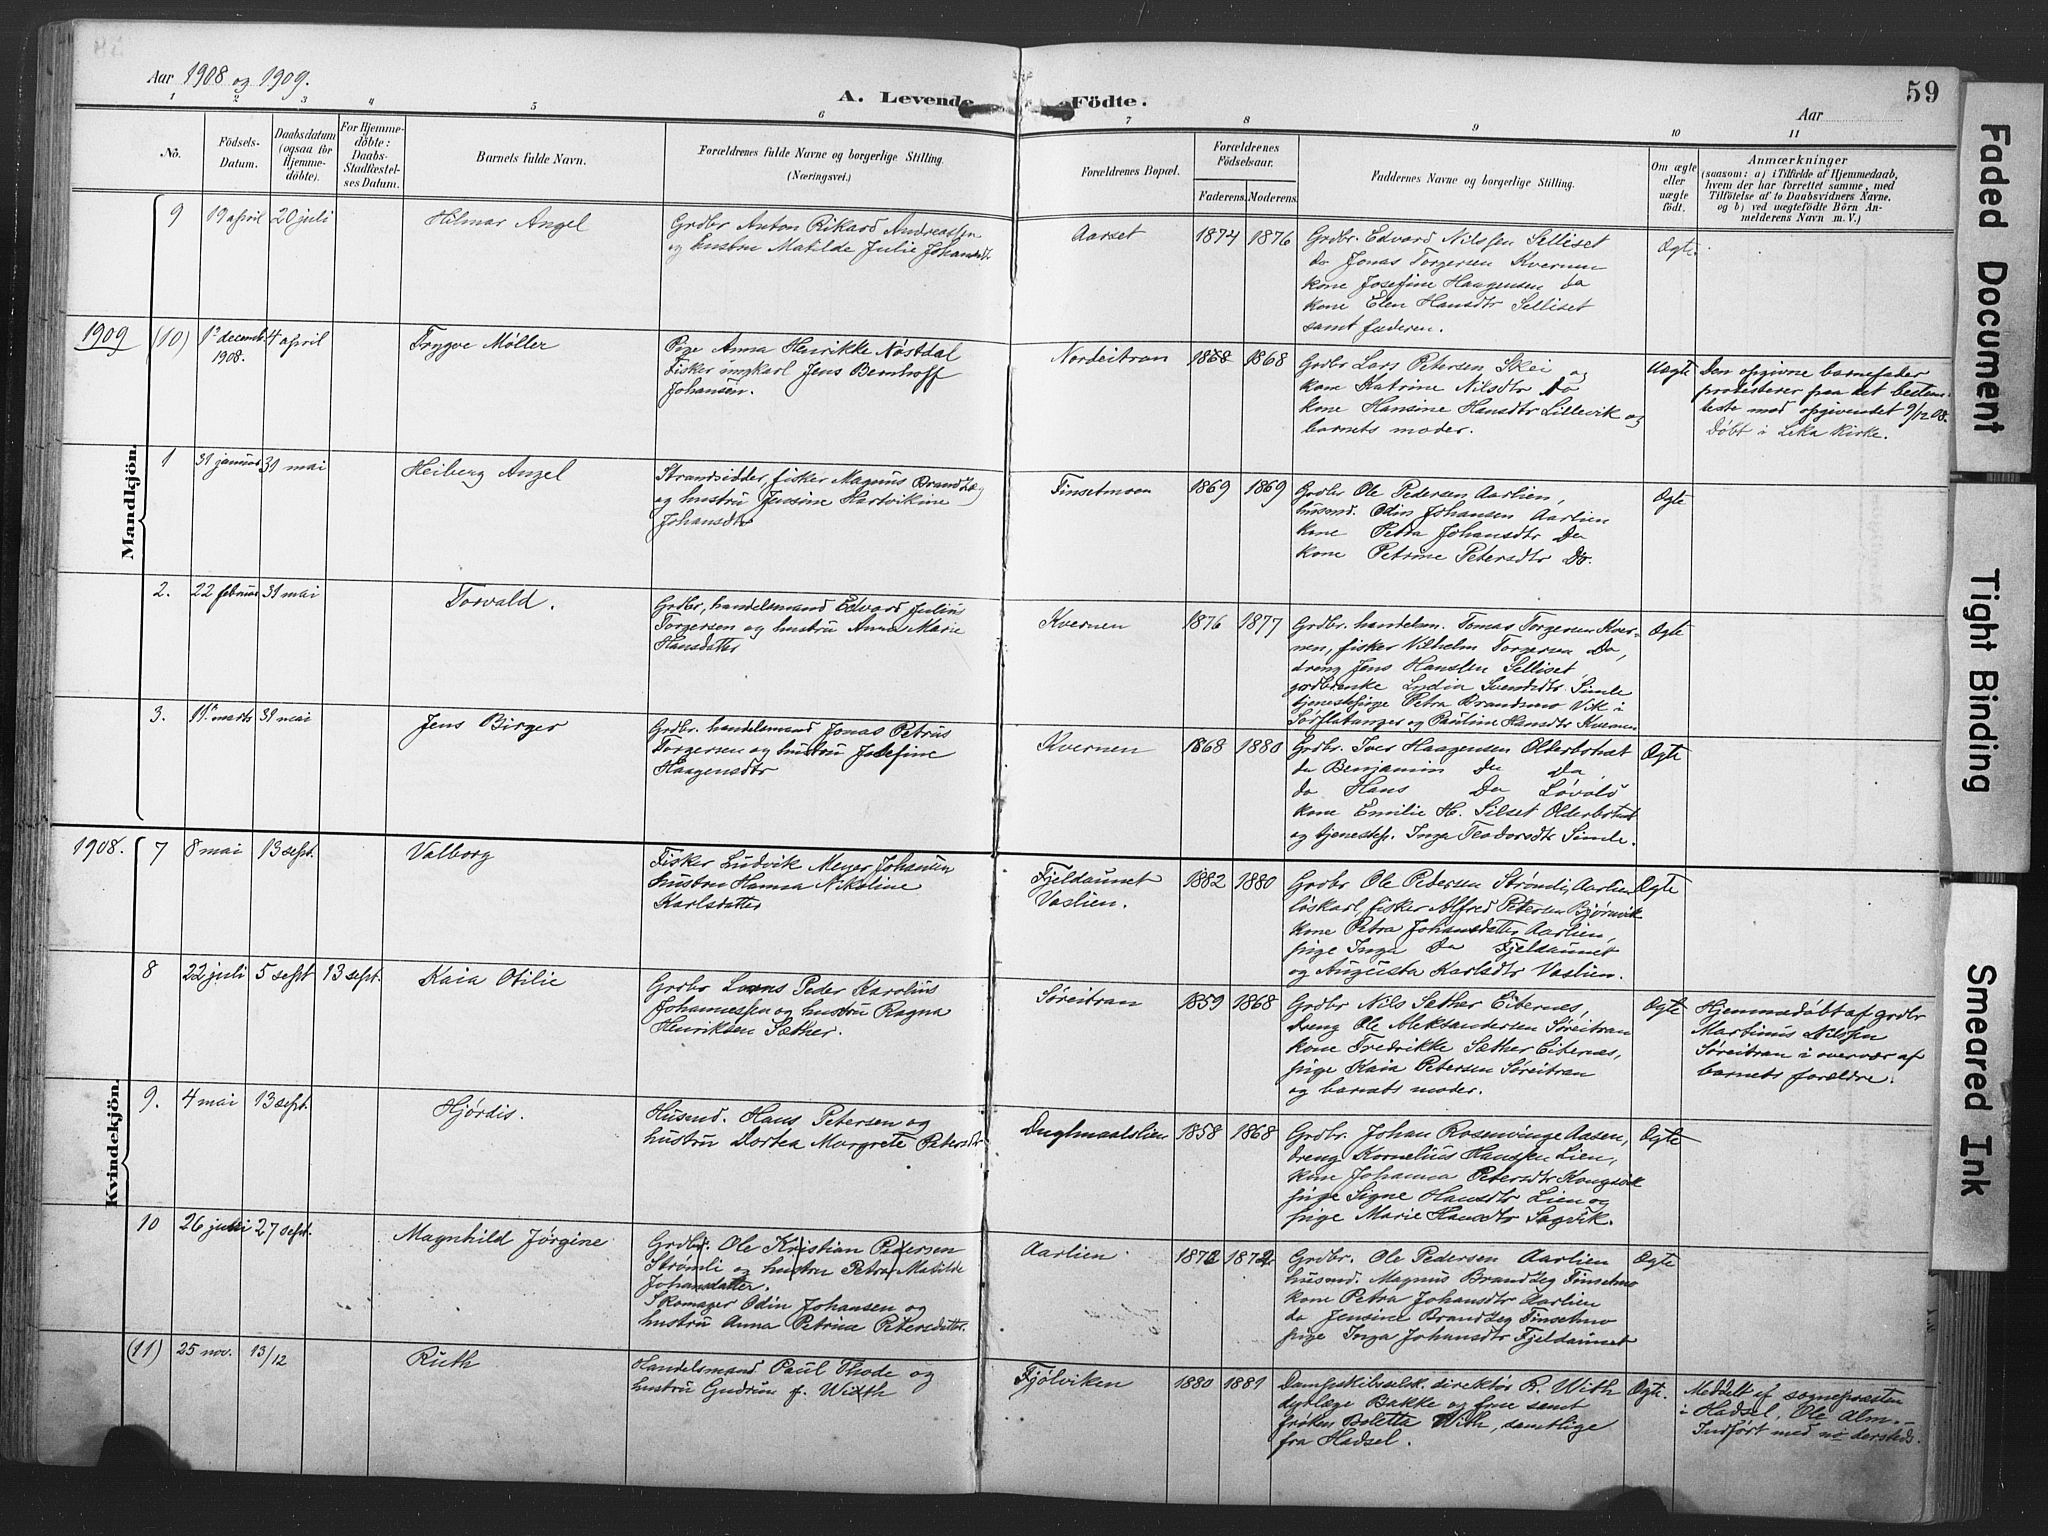 Aar 1908 og 1909.
A. Levende Födte.
Aar
59
1 2 3 4 5 6 7 8 9 10 11
No.
Födsels-
Datum.
Daabsdatum
(ogsaa for
Hjemme-
döbte).
For Hjemme-
döbte:
Daabs-
Stadfæstel-
ses Datum.
Barnets fulde Navn.
Forældrenes fulde Navne og borgerlige Stilling.
(Næringsvei.)
Forældrenes Bopæl.
Forældrenes
Födselsaar.
Faderens. Moderens.
Faddernes Navne og borgerlige Stilling.
Om ægte
eller
uægte
födt.
Anmærkninger
(saasom: a) i Tilfælde af Hjemmedaab,
hvem der har forrettet samme, med
Tilföielse af to Daabsvidners Navne,
og b) ved uægtefödte Börn An-
melderens Navn m. V.)
Mandkjön.
9 19 april 20 juli Hilmar Angel
Grdbr Anton Rikard Andreassen
og hustru Matilde Julie Johansdtr
Aarset 1874 1876
Grdbr. Edvard Nilssen Selliset
do Jonas Torgersen Kvernen
kone Josefine Haagensen do
kone Elen Hansdtr Selliset
samt faderen.
Ægte.
1909 (10) 12 decemb. 1908. 4 april Trygve Møller
Pige Anna Henrikke Nøstdal
Fisker ungkarl Jens Bernhoff
Johansen.
Nordeitran 1868 1868
Grdbr Lars Petersen Skei og
kone Katrine Nilsdtr do
kone Hansine Hansdtr Lillevik og
barnets moder.
Uægte
Den opgivne barnefader
protesterer paa det bestem-
teste mod opgivendet 9/12 08.
Døbt i Leka Kirke.
1 31 januar 31 mai Heiberg Angel
Strandsidder, fisker Magnus Brandzæg
og hustru Jensine Hartvikine
Johansdtr
Finsetmoen 1869 1869
Grdbr Ole Pedersen Aarlien,
husmd. Odin Johansen Aarlien
kone Petra Johansdtr Do
kone Petrine Petersdtr Do.
Ægte
2. 22 februar 31 mai Torvald.
Grdbr, handelsmand Edvard Julius
Torgersen og hustru Anna Marie
Hansdatter
Kvernen 1876 1877
Grdbr. handelm. Tomas Torgersen Kver-
nen, fisker Vilhelm Torgersen Do,
dreng Jens Hanssen Selliset
grdbrenke Lydia Svendsdtr Simle
tjenestepige Petra Brandmo Vik i
Sørflatanger og Pauline Hansdtr Kvernen
Ægte
3. 19. marts 31 mai Jens Birger
Grdbr. handelsmand Jonas Petrus
Torgersen og hustru Josefine
Haagensdtr
Kvernen 1868 1880
Grdbr. Iver Haagensen Olderbotnet
do Benjamin Do Do
do Hans Do Løvold
kone Emilie H. Silset Olderbotnet
og tjenestep. Inga Teodorsdtr Simle.
Ægte
Kvindekjön.
1908. 7 8 mai 13 sept. Valborg
Fisker Ludvik Meyer Johansen
hustru Hanna Nikoline
Karlsdatter
Fjeldaunet
Vaslien. 1882 1880
Grdbr Ole Pedersen Strømli, Aarlien
løskarl, fisker Alfred Petersen Bjørnvik
kone Petra Johansdatter Aarlien,
pige Inga Do Fjeldaunet
og Augusta Karlsdtr Vaslien.
Ægte
8 22 juli 5 sept 13 sept. Kaia Otilie
Grdbr Lorns Peder Karolius
Johannessen og hustru Ragna
Henriksen Sæther.
Søreitran 1859 1868
Grdbr Nils Sæther Eiternes,
Dreng Ole Aleksandersen Søreitran
kone Fredrikke Sæther Eiternes,
pige Kaia Petersen Søreitran
og barnets moder.
Ægte
Hjemmedøbt af grdbr
Martinus Nilssen
Søreitran i overvær af
barnets forældre.
9. 4 mai 13 sept. Hjørdis.
Husmd. Hans Petersen og
hustru Dortea Margrete Petersdtr
Duglmaalslien 1858 1868
Grdbr. Johan Rosenvinge Aasen,
dreng Kornelius Hanssen Lien,
kone Johanna Petersdtr Kongsvik
pige Signe Hansdtr Lien og
pige Marie Hansdtr Sagvik.
Ægte
10 26 juli 27 sept. Magnhild Jørgine
Grdbr. Ole Kristian Pedersen
Strømli og hustru Petra Matilde
Johansdatter.
Skomager Odin Johansen og
hustru Anna Petrine Petersdatter.
Aarlien. 1872 1872
Grdbr. Ole Pedersen Aarlien
husmd. Magnus Brandzeg Finsetmo
kone Petra Johansdtr Aarlien
do Jensine Brandzeg Finsetmo
pige Inga Johansdtr Fjeldaunet
Ægte
(11) 25 nov. 13/12 Ruth
Handelsmand Paul Thode og
hustru Gudrun f. With
Fjølviken 1880 1881
Dampskibselsk. direktør R. With
dyrlæge Bakke og frue samt
frøken Bolette With, samtlige
fra Hadsel.
Ægte.
Meddelt af sognepræsten
i Hadsel, Ole Alm.
Indført med no dersteds.
Faded Document
Tight Binding
Smeared Ink